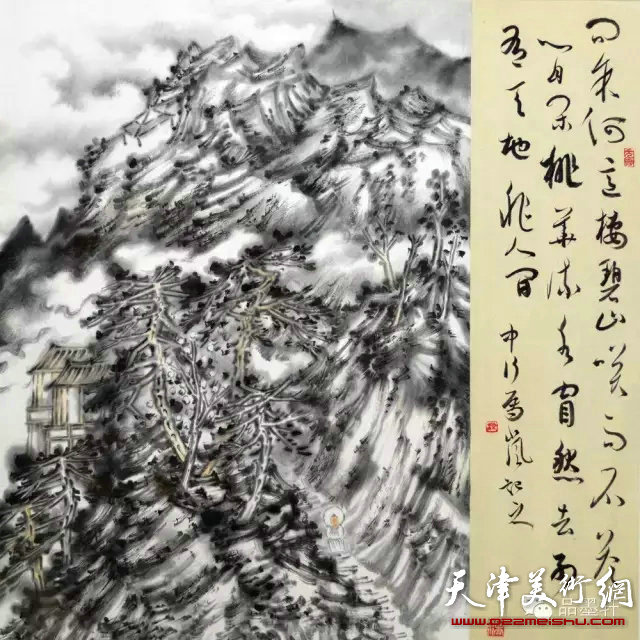 问余何意棲碧山笑而不答
心自闲桃華流水窅然去别
有天地非人间 中行
天津美術網
www.022meishu.com